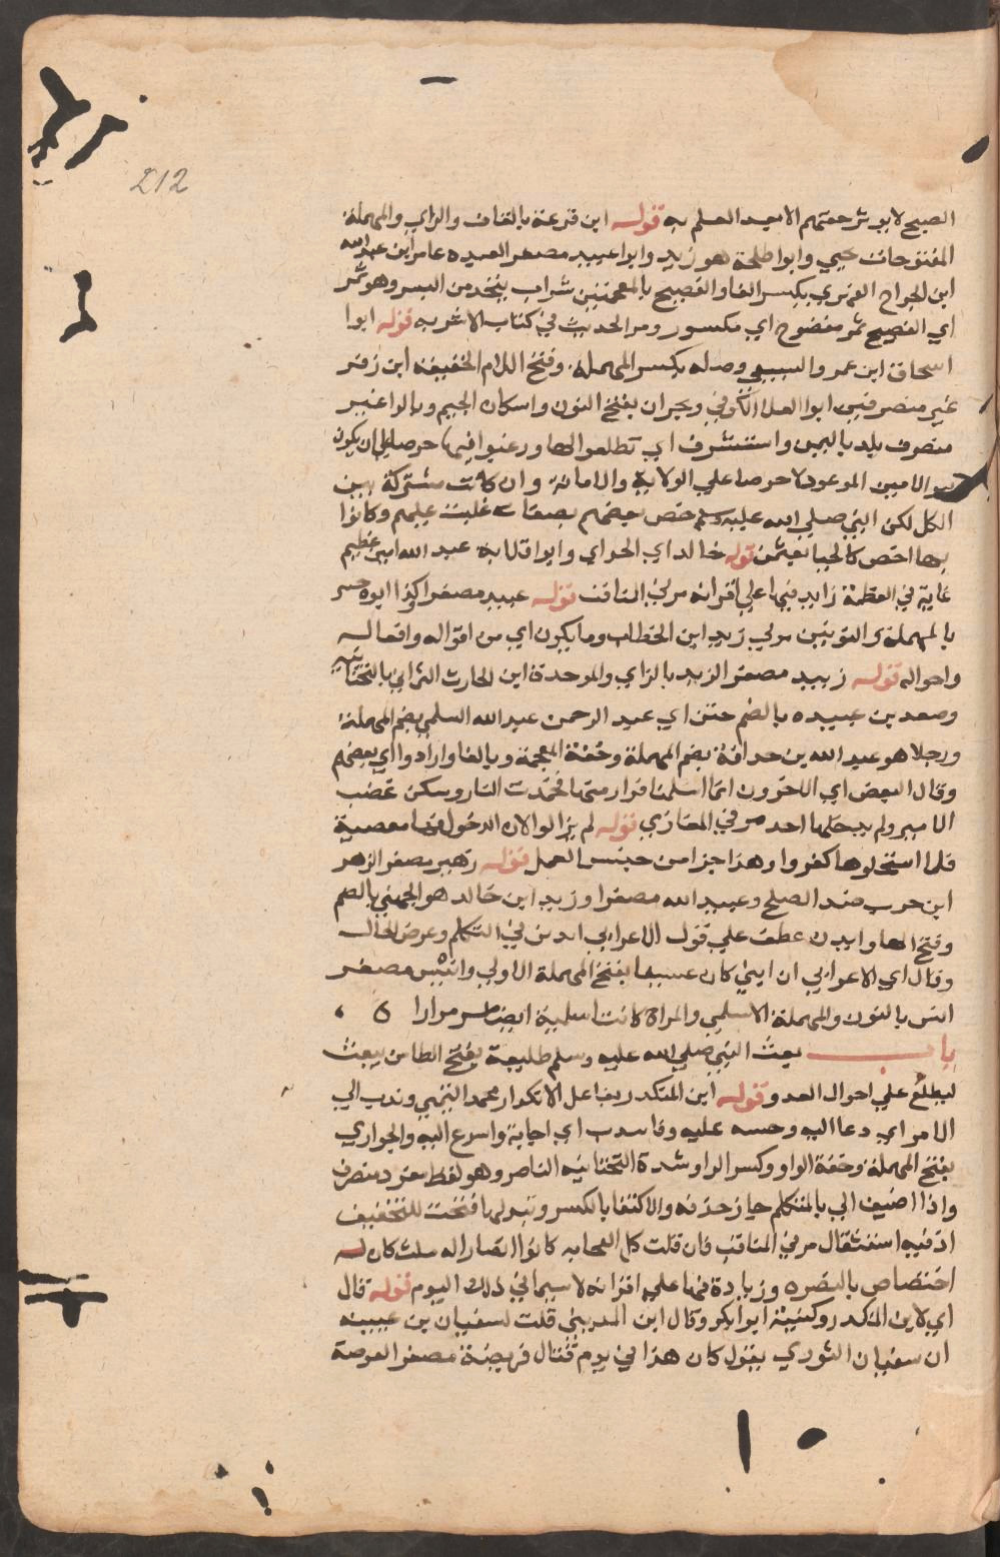 212
الصبح لابو شر حقتهم الا بعد العلم به قوله ابن قزعة بالقاف والزاي والمهملة
المفتوحات يحيي وابوا طلحة هو زيد وابوا عبيد مصغر العبده عامر ابن عبد الله
ابن الجراح الفهري بكسر الفا والفضيخ بالمعجمتين شراب يتخذ من البسر وهو تمر
اي الفضيخ تمر مفضوخ اي مكسور ومر الحديث في كتاب الاشربه قوله ابوا
اسحاق ابن عمرو السبيعي وصله بكسر المهملة وفتح اللام الخفيفة ابن زفر
غير منصرفين ابوا العلا الكوفي ونجران بفتح النون واسكان الجيم وبالرا غير
منصرف بلد باليمن واستشرف اي تطلعوا لها ورغبوا فيها حرصا على ان يكون
هو الامين الموعود لا حرصا علي الولاية والامانة وان كانت مشتركة بين
الكل لكن النبي صلي الله عليه وسلم خص بعضهم بصفات غلبت عليهم وكانوا
بها اخص كالحيا بعثمن قوله خالد اي الحذاي وابوا قلابة عبد الله امين عظيم
غاية في العظمة زايد فيها علي اقرانه مر في المناقب قوله عبيد مصغرا كذا ابوه حنين
بالمهملة والنونين مولي زيد ابن الخطاب وما يكون اي من اقواله وافعاله
واحواله قوله زبيد مصغر الزبد بالزاي والموحدة ابن الحارث اليامي بالتحتانيه
وسعد بن عبيده بالضم ختن ابي عبد الرحمن عبد الله السلمي بضم المهملة
ورجلا هو عبد الله بن حذافة بضم المهملة وخفة المعجمة وبالفا وارادوا اي بعضهم
وقال البعض اي الاخرون انما اسلمنا فرارا منها فخمدت النار وسكن غضب
الامير ولم يدخلها احد مر في المغازي قوله لم يزالوا لان الدخول فيها معصية
فلما استحلوها كفروا وهذا جزا من جنس العمل قوله زهير مصغر الزهر
ابن حرب ضد الصلح وعبيد الله مصغرا وزيد ابن خالد هو الجهني بالضم
وفتح الها وايذن عطف علي قول الاعرابي ائذن لي في التكلم وعرض الحال
وقال اي الاعرابي ان ابني كان عسيفا بفتح المهملة الاولي وانيس مصغر
انس بالنون والمهملة الاسلمي والمراة كانت اسلمية ايضا مر مرارا ه
باب بعث النبي صلي الله عليه وسلم طليعة بفتح الطا من يبعث
ليطلع علي احوال العدو قوله ابن المنكدر بفاعل الانكدار محمد التيمي وندب الي
الامر اي دعا اليه وحسه عليه وفانتدب اي اجابة واسرع اليه والحواري
بفتح المهملة وخفة الواو وكسر الرا وشدة التحتانية الناصر وهو لفظ مفرد منصرف
واذا اضيف الي يا المتكلم جاز حذفه والاكتفا بالكسر وتبديلها فتحت للتخفيف
اذ فيه استثقال مر في المناقب فان قلت كل الصحابه كانوا انصارا له قلت كان له
اختصاص بالنصره وزيادة فيها علي اقرانه لاسيما في ذلك اليوم قوله قال
اي لابن المنكدر وكنيته ابوا بكر وقال ابن المديني قلت لسفيان بن عيينه
ان سفيان الثوري يقول كان هذا في يوم قتال قريضة مصغر القرضة